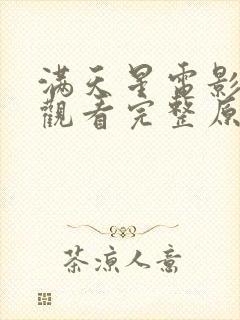 滿天星電影
觀看完整原
茶凉人意